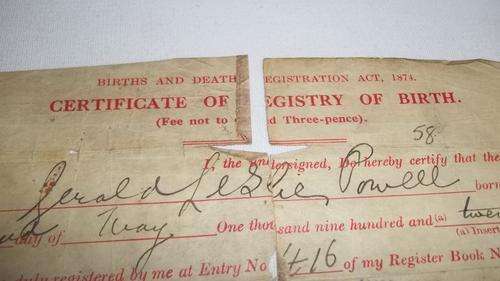 BIRTHS AND DEATH EGISTRATION ACT, 1874.
CERTIFICATE OF EGISTRY OF BIRTH.
(Fee not to d Three-pence).
58
I, the undersigned, Do hereby certify that the
Gerald Leslie Powell born
day of May One thousand nine hundred and (a) twe
(a) Insert
duly registered by me at Entry No 416 of my Register Book N